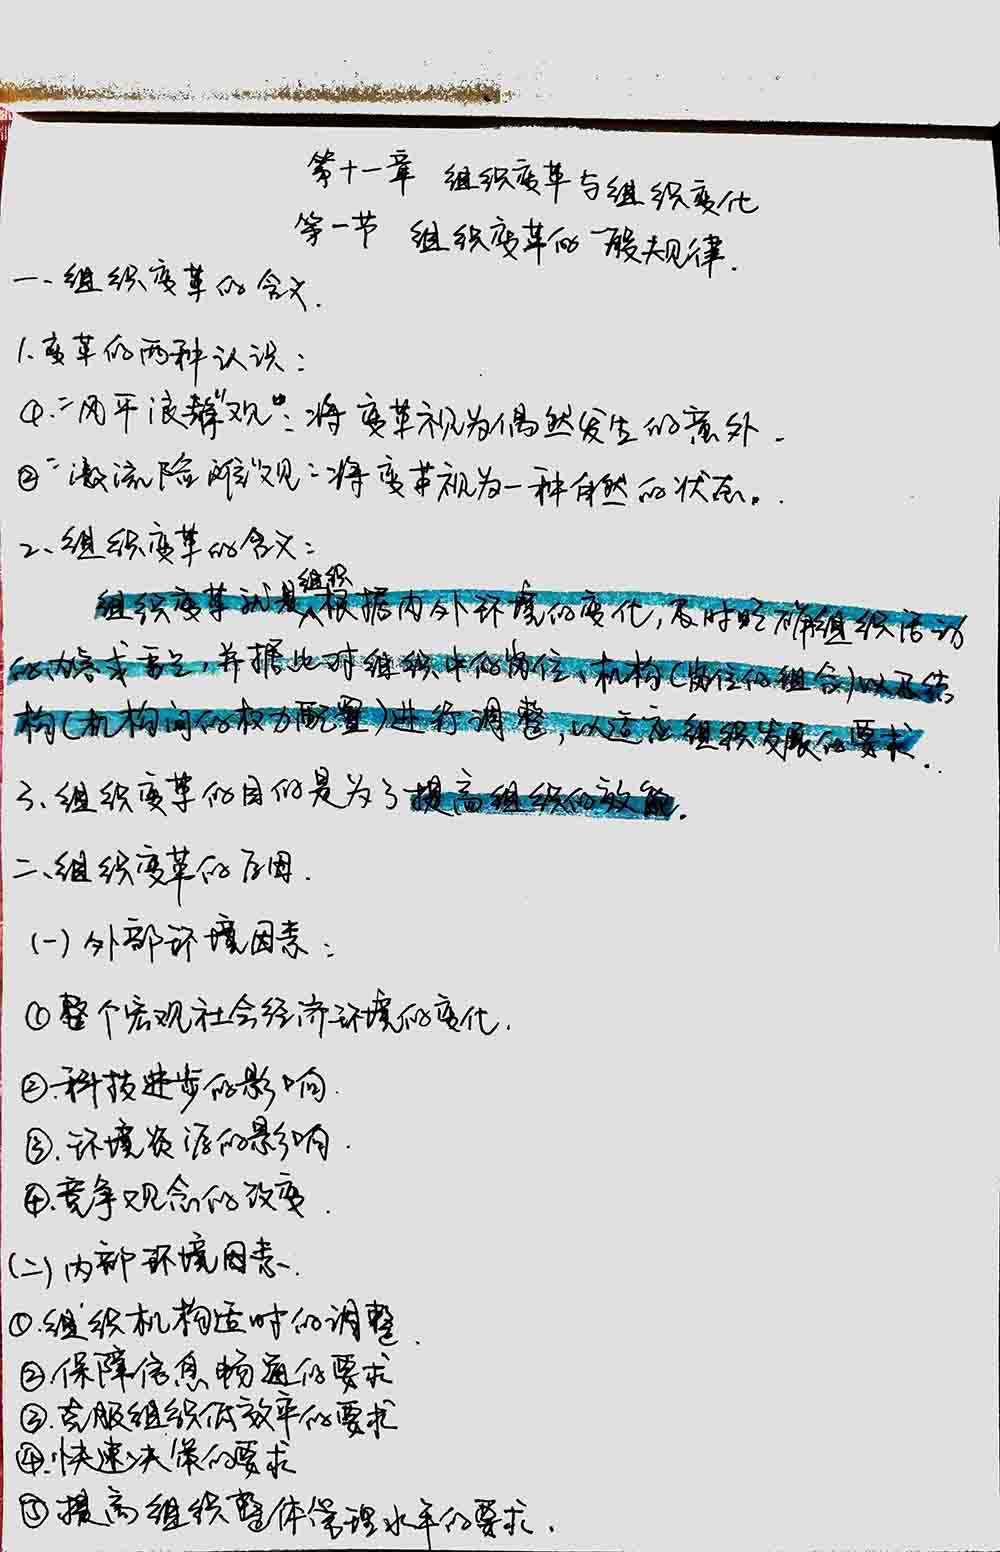 第十一章 组织变革与组织变化
第一节 组织变革的一般规律.
一、组织变革的含义.
1、变革的两种认识:
①."风平浪静"观": 将变革视为偶然发生的意外.
②"激流险滩"观: 将变革视为一种自然的状态。.
2、组织变革的含义:
组织变革就是组织根据内外环境的变化,及时明确组织活动
的内容或重点,并据此对组织中的岗位、机构(岗位的组合)以及结
构(机构间的权力配置)进行调整,以适应组织发展的要求.
3、组织变革的目的是为了提高组织的效能.
二、组织变革的原因.
(一)外部环境因素:
①整个宏观社会经济环境的变化.
②.科技进步的影响.
③.环境资源的影响.
④.竞争观念的改变.
(二)内部环境因素.
①.组织机构适时的调整.
②保障信息畅通的要求
③.克服组织低效率的要求
④.快速决策的要求
⑤提高组织整体管理水平的要求.